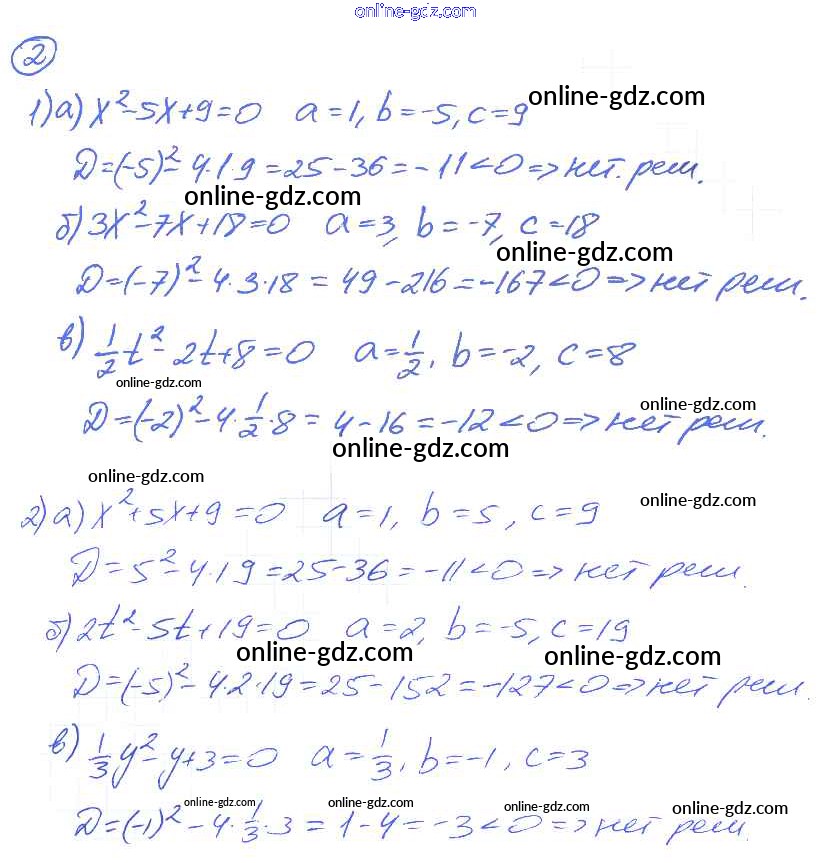 online-gdz.com
2
1) а) x²-5x+9=0 a=1, b=-5, c=9 online-gdz.com
D=(-5)²-4·1·9=25-36=-11<0=>нет. реш.
online-gdz.com
б) 3x²-7x+18=0 a=3, b=-7, c=18
online-gdz.com
D=(-7)²-4·3·18=49-216=-167<0=>нет реш.
в) 1/2t²-2t+8=0 a=1/2, b=-2, c=8
online-gdz.com
D=(-2)²-4·1/2·8=4-16=-12<0=>нет реш.
online-gdz.com
online-gdz.com
online-gdz.com
online-gdz.com
2) а) x²+5x+9=0 a=1, b=5, c=9
D=5²-4·1·9=25-36=-11<0=>нет реш.
б) 2t²-5t+19=0 a=2, b=-5, c=19
online-gdz.com online-gdz.com
D=(-5)²-4·2·19=25-152=-127<0=>нет реш.
в) 1/3y²-y+3=0 a=1/3, b=-1, c=3
online-gdz.com online-gdz.com online-gdz.com online-gdz.com
D=(-1)²-4·1/3·3=1-4=-3<0=>нет реш.